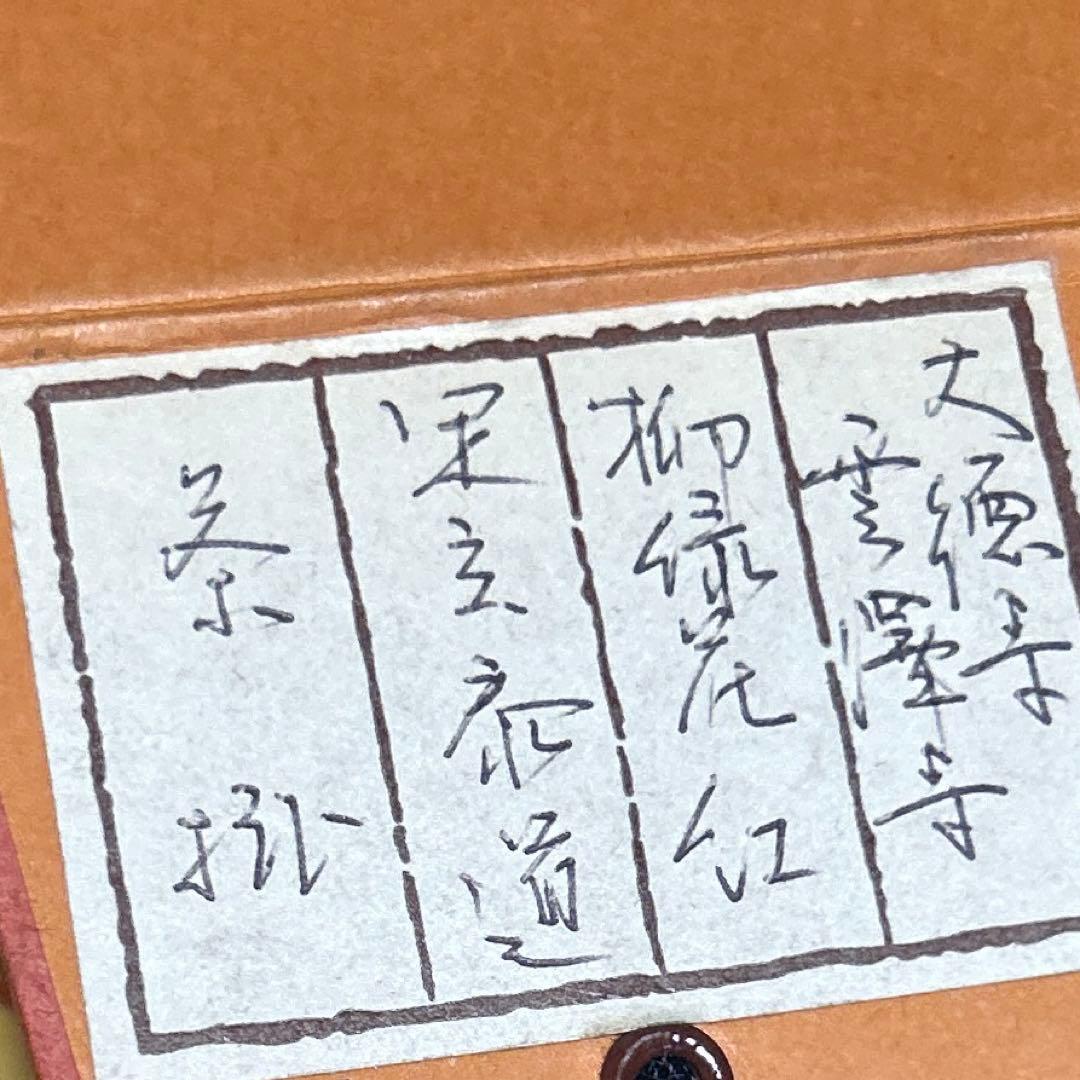 大徳寺
雲澤寺
柳緑花紅
道
茶掛